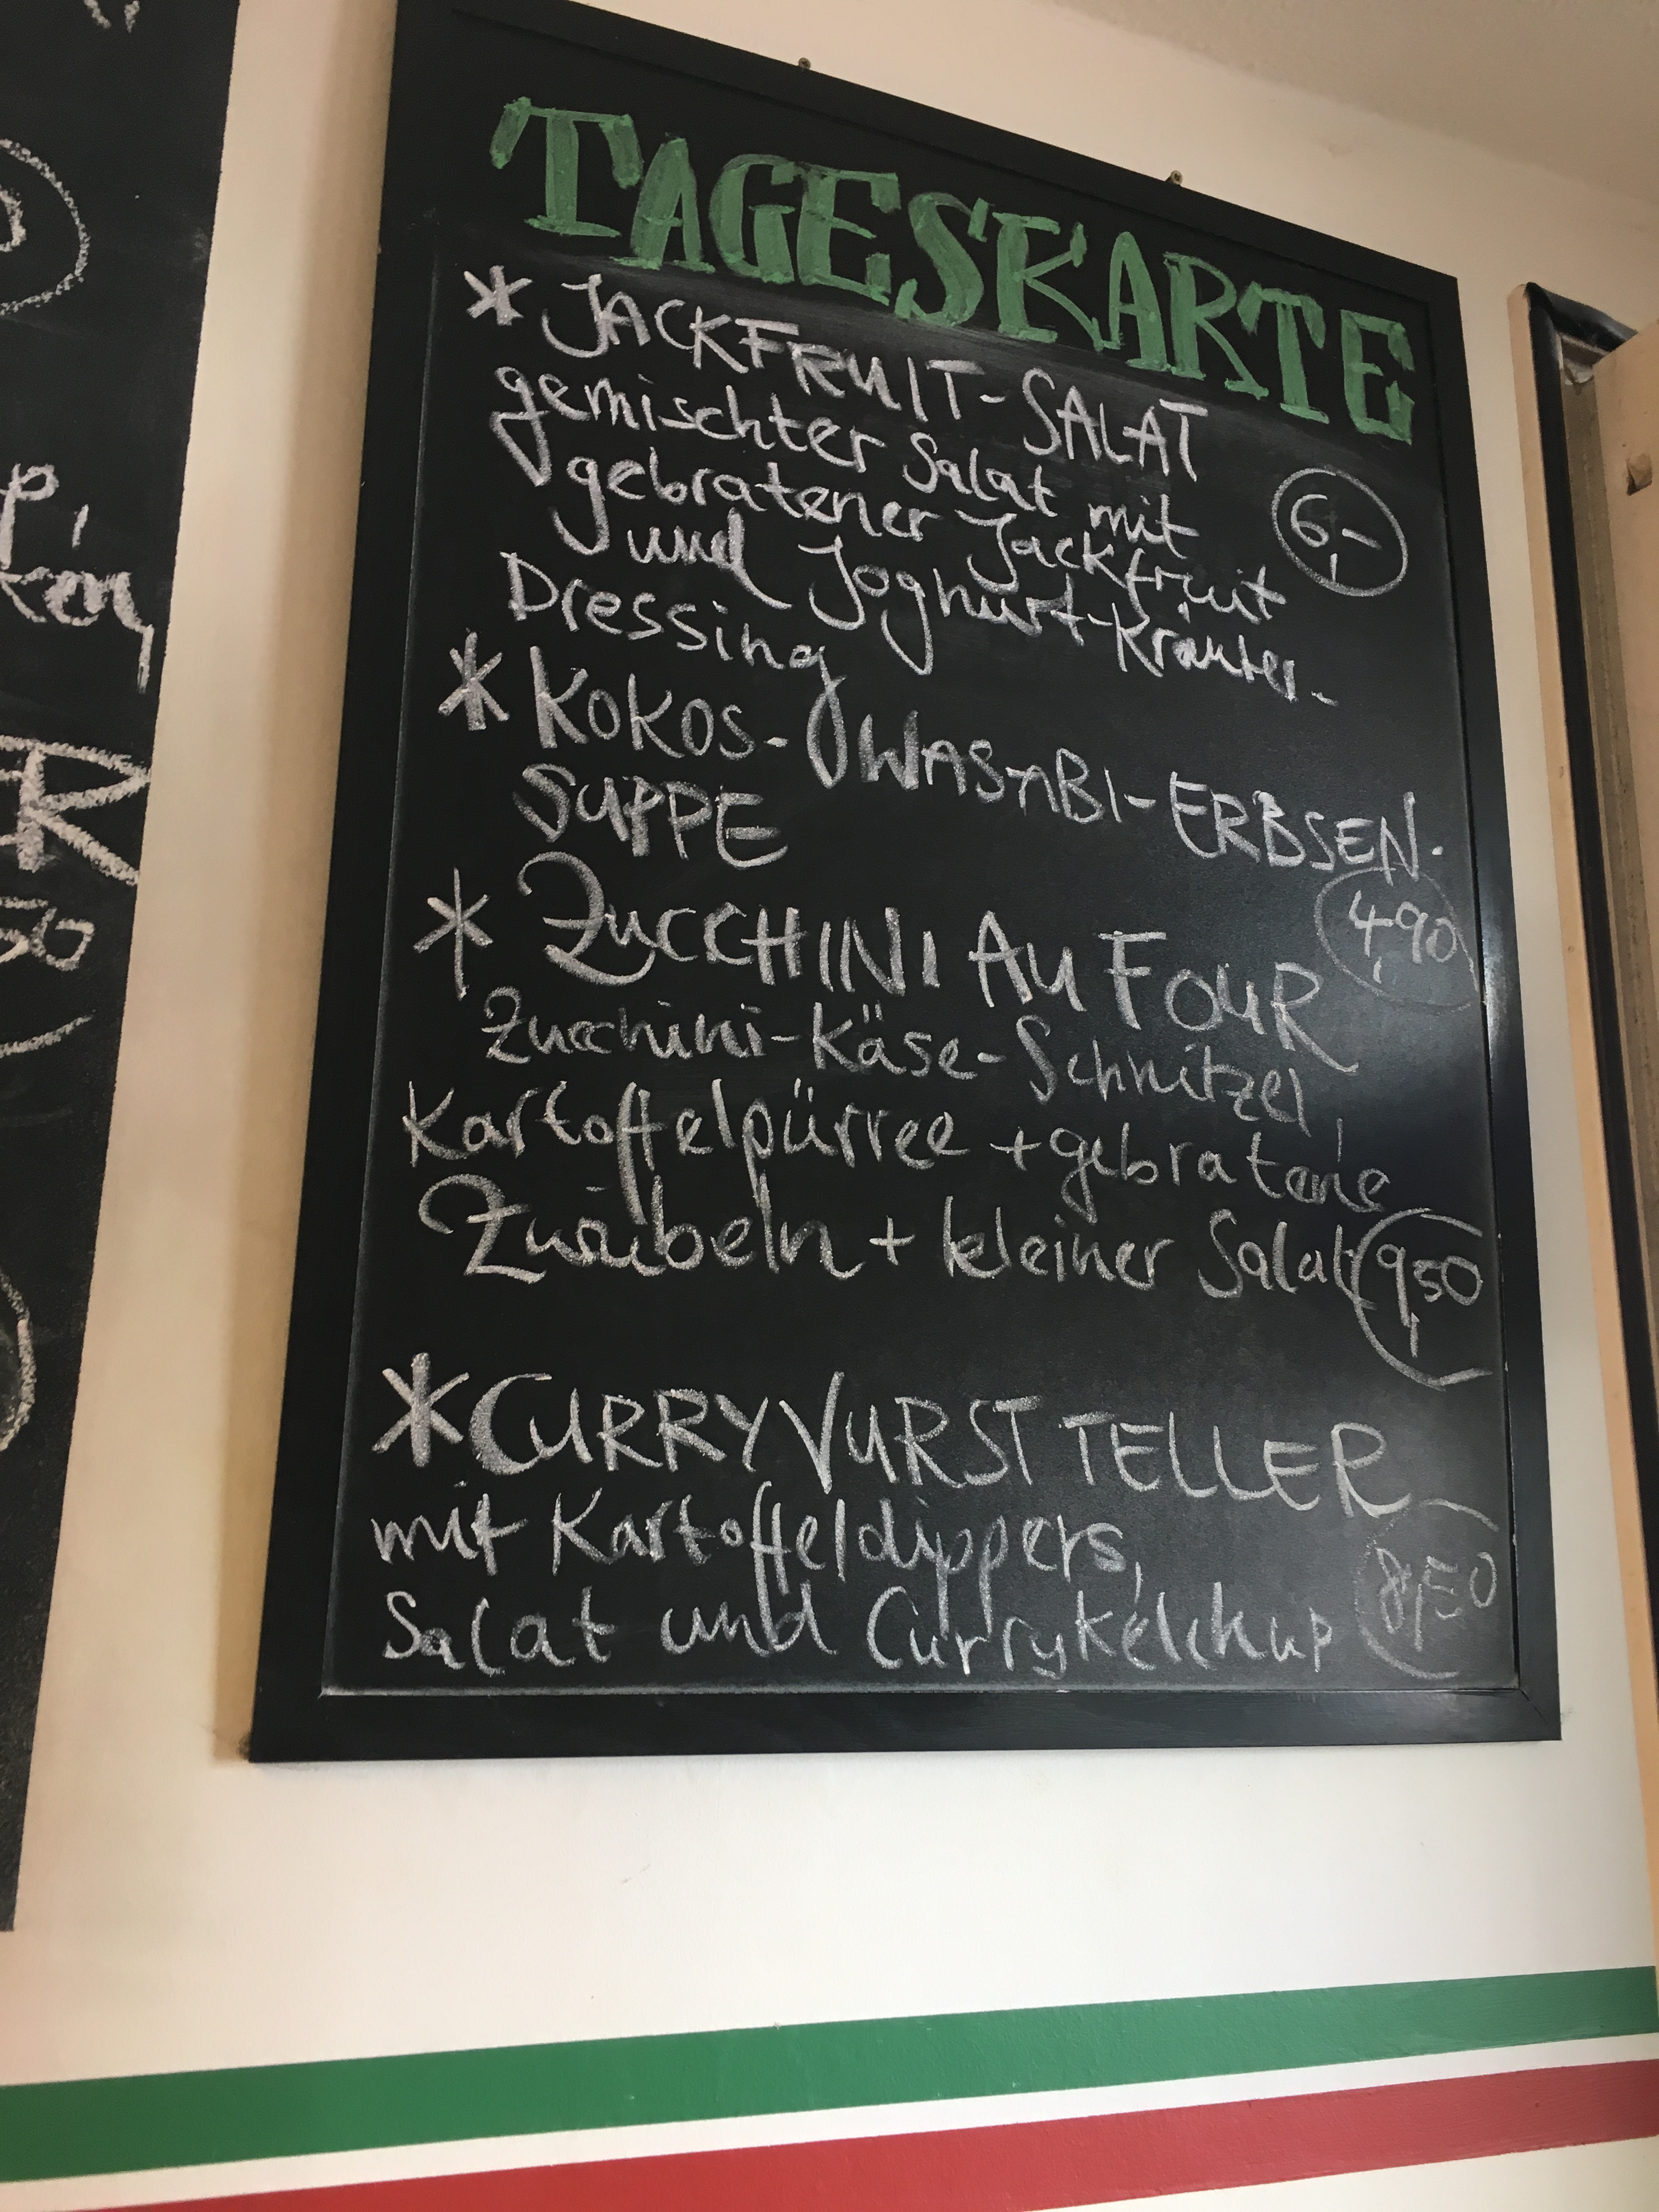 TAGESKARTE
* JACKFRUIT-SALAT
gemischter Salat mit
gebratener Jackfruit
6,-
und Joghurt-Kräuter-
Dressing
* KOKOS-WASABI-ERBSEN-
SUPPE
4,90
* ZUCCHINI AU FOUR
Zucchini-Käse-Schnitzel,
Kartoffelpürree + gebratene
Zwiebeln + kleiner Salat
9,50
* CURRYVURST TELLER
mit Kartoffeldippers,
Salat und Curryketchup
8,50
p,
ken
R
50